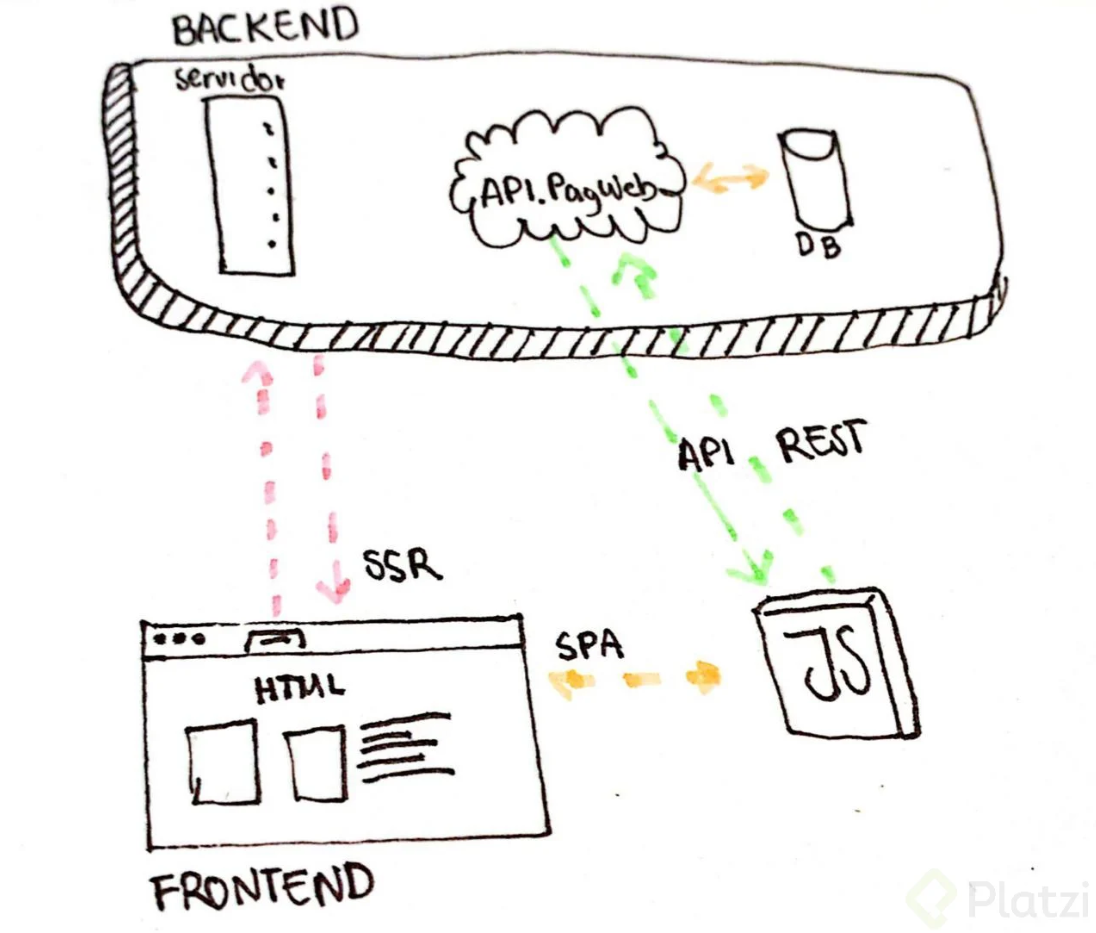 BACKEND
servidor
API.PagWeb
DB
API REST
SSR
SPA
JS
HTML
FRONTEND
Platzi